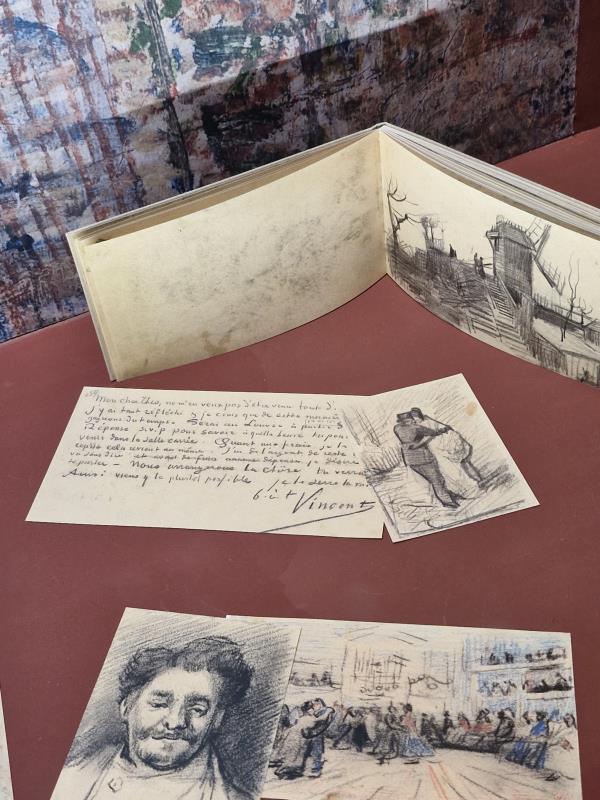 Mon cher Theo, ne m'en veux pas d'être venu tout d'
J'y ai tant réfléchi & je crois que de cette manière
gagnons du temps. Serai au Louvre à partir
Réponse s.v.p. pour savoir à quelle heure tu pour
venir dans la Salle Carrée. Quant aux frais je te
répète cela revient au même. J'ai de l'argent de reste
va sans dire et avant de faire aucune dépense je désire
te parler — Nous arrangerons la chose tu verras
Ainsi viens y le plus tôt possible. je te serre la
b. à t. Vincent